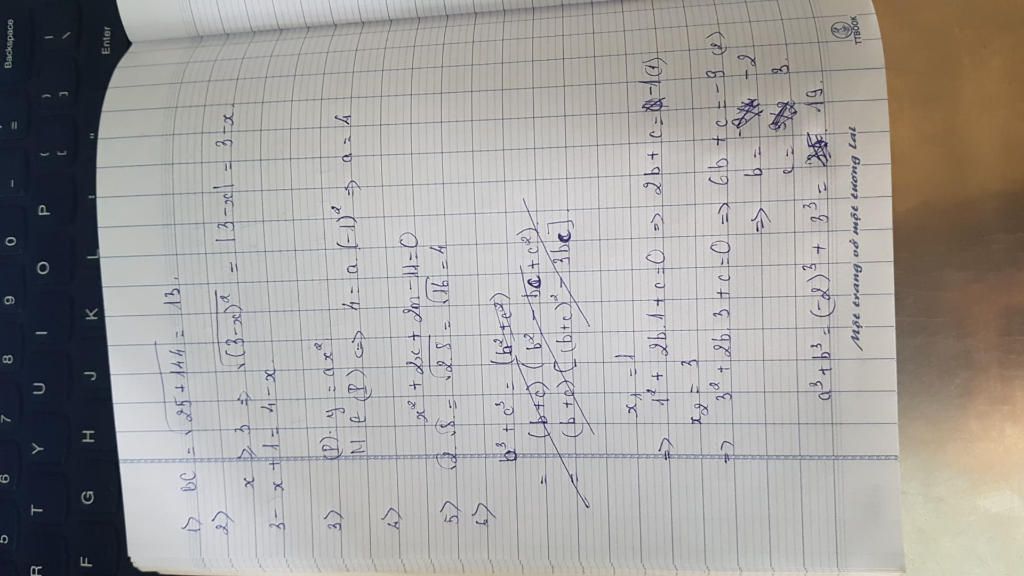 1) BC = √25+144 = 13.
2) x ≥ 3 => √(3-x)² = |3-x| = 3-x.
3-x+1 = 4-x.
3) (P): y = ax²
M ∈ (P) <=> 4 = a.(-1)² => a = 4
4) x² + 2x + 2m - 11 = 0
5) √2 √8 = √2.8 = √16 = 4
6) b³ + c³ = (b²+c²)
= (b+c)(b² - bc + c²).
= (b+c)[(b+c)² - 3bc]
x₁ = 1
=> 1² + 2b.1 + c = 0 => 2b + c = -1 (1)
x₂ = 3
=> 3² + 2b.3 + c = 0 => 6b + c = -9 (2)
=> b = -2
c = 3.
a³ + b³ = (-2)³ + 3³ = 19.
Một trang vở một tương lai
TTBOOK
Backspace
Enter
5 6 7 8 9 0 - =
R T Y U I O P { [ } ] | \
F G H J K L : ; " '